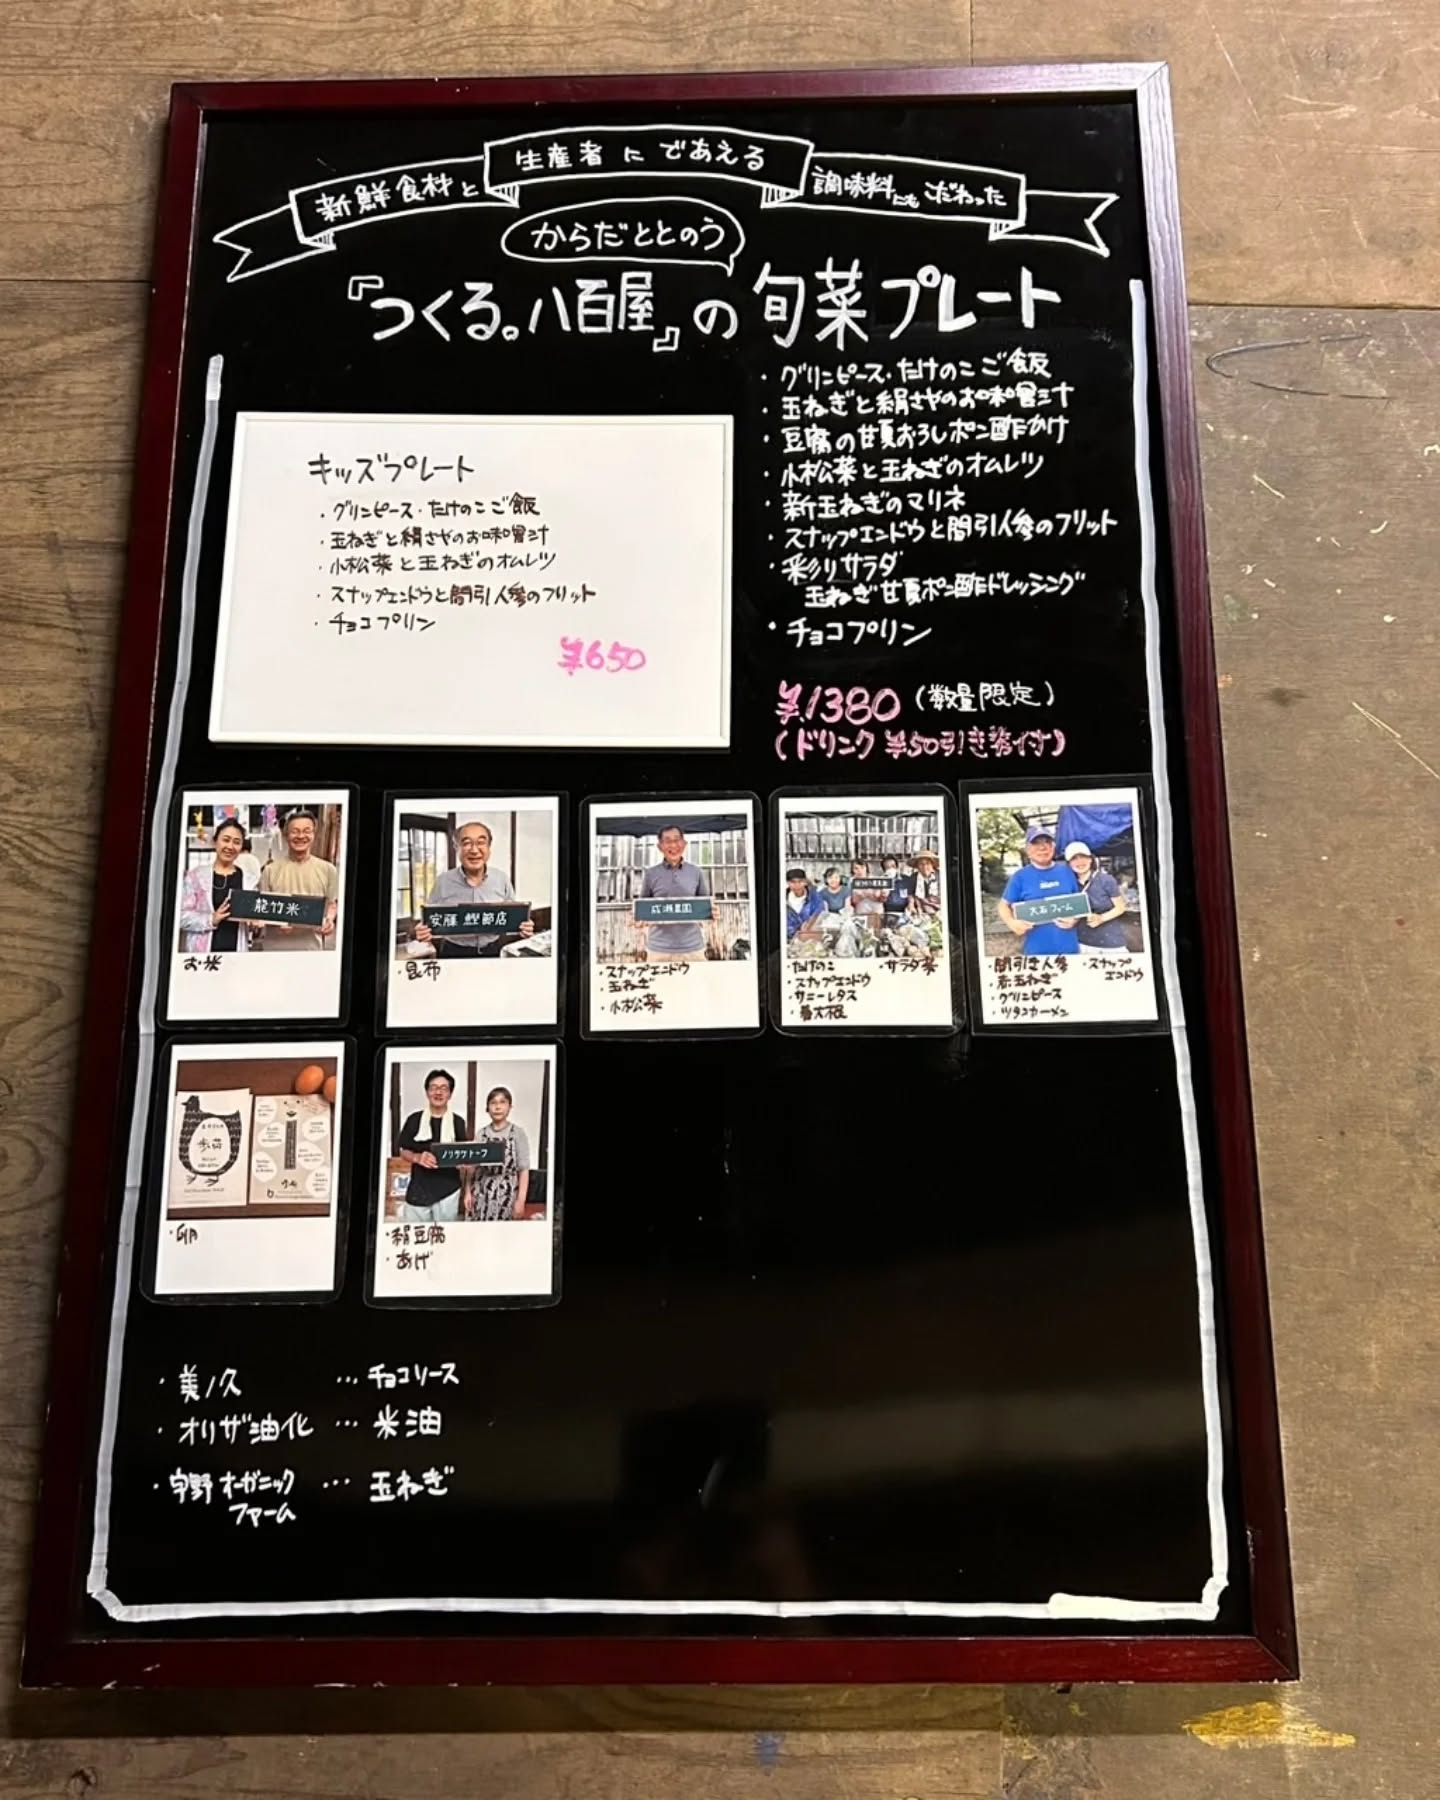 新鮮食材と
生産者にであえる
調味料にもこだわった
からだととのう
『つくる。八百屋』の旬菜プレート
・グリンピース・たけのこご飯
・玉ねぎと絹さやのお味噌汁
・豆腐の甘夏おろしポン酢かけ
・小松菜と玉ねぎのオムレツ
・新玉ねぎのマリネ
・スナップエンドウと間引人参のフリット
・彩りサラダ
玉ねぎ甘夏ポン酢ドレッシング
・チョコプリン
¥1380(数量限定)
(ドリンク¥50引き券付)
キッズプレート
・グリンピース・たけのこご飯
・玉ねぎと絹さやのお味噌汁
・小松菜と玉ねぎのオムレツ
・スナップエンドウと間引人参のフリット
・チョコプリン
¥650
龍竹米
お米
安藤鰹節店
・昆布
成瀬農園
・スナップエンドウ
・玉ねぎ
・小松菜
・たけのこ ・サラダ菜
・スナップエンドウ
・サニーレタス
・春大根
大石ファーム
・間引き人参 ・スナップ
エンドウ
・新玉ねぎ
・グリンピース
・ツタンカーメン
歩荷
・卵
ノリタケトーフ
・絹豆腐
・あげ
・美ノ久 … チョコソース
・オリザ油化 … 米油
・宇野オーガニック … 玉ねぎ
ファーム